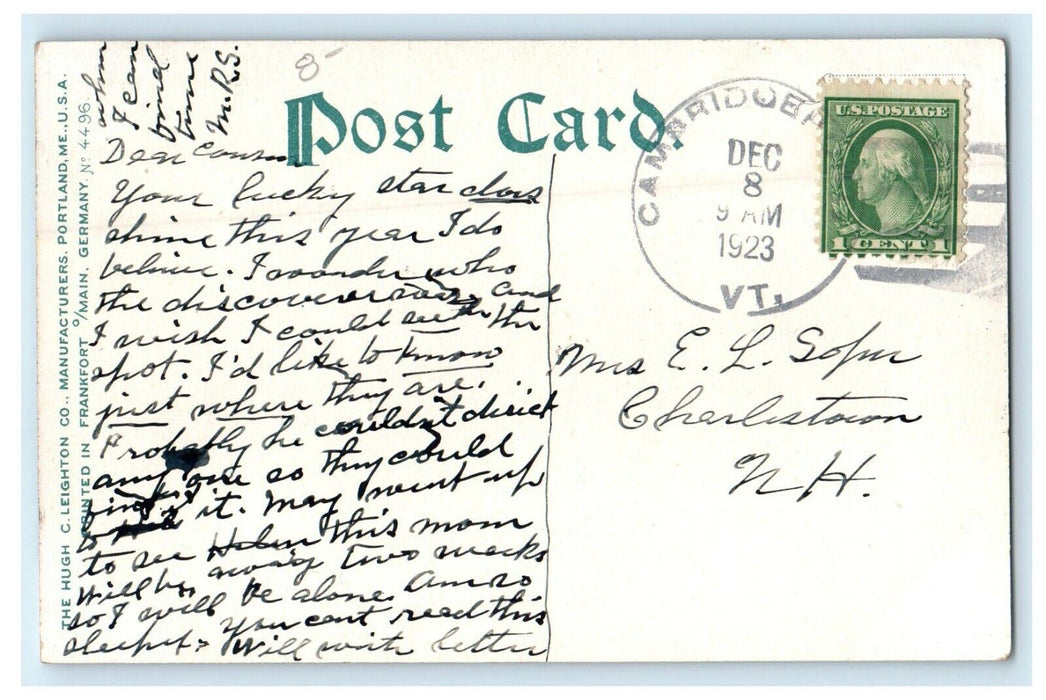 Post Card.
THE HUGH C. LEIGHTON CO., MANUFACTURERS, PORTLAND, ME., U.S.A.
PRINTED IN FRANKFORT o/MAIN, GERMANY. No 4496.
8
CAMBRIDGE
DEC
8
9 AM
1923
VT.
U.S. POSTAGE
1 CENT 1
Mrs E. L. Soper
Charlestown
N. H.
Dear Cousin
Your lucky star does
shine this year I do
believe. I wonder who
the discoverer was and
I wish I could see the
spot. I'd like to know
just where they are.
Probably he couldn't direct
any one so they could
find it. May went up
to see Helen this morn
Will be away two weeks
so I will be alone. Am so
sleepy. You cant read this
Will write letter
when
I can
find
time
M.R.S.